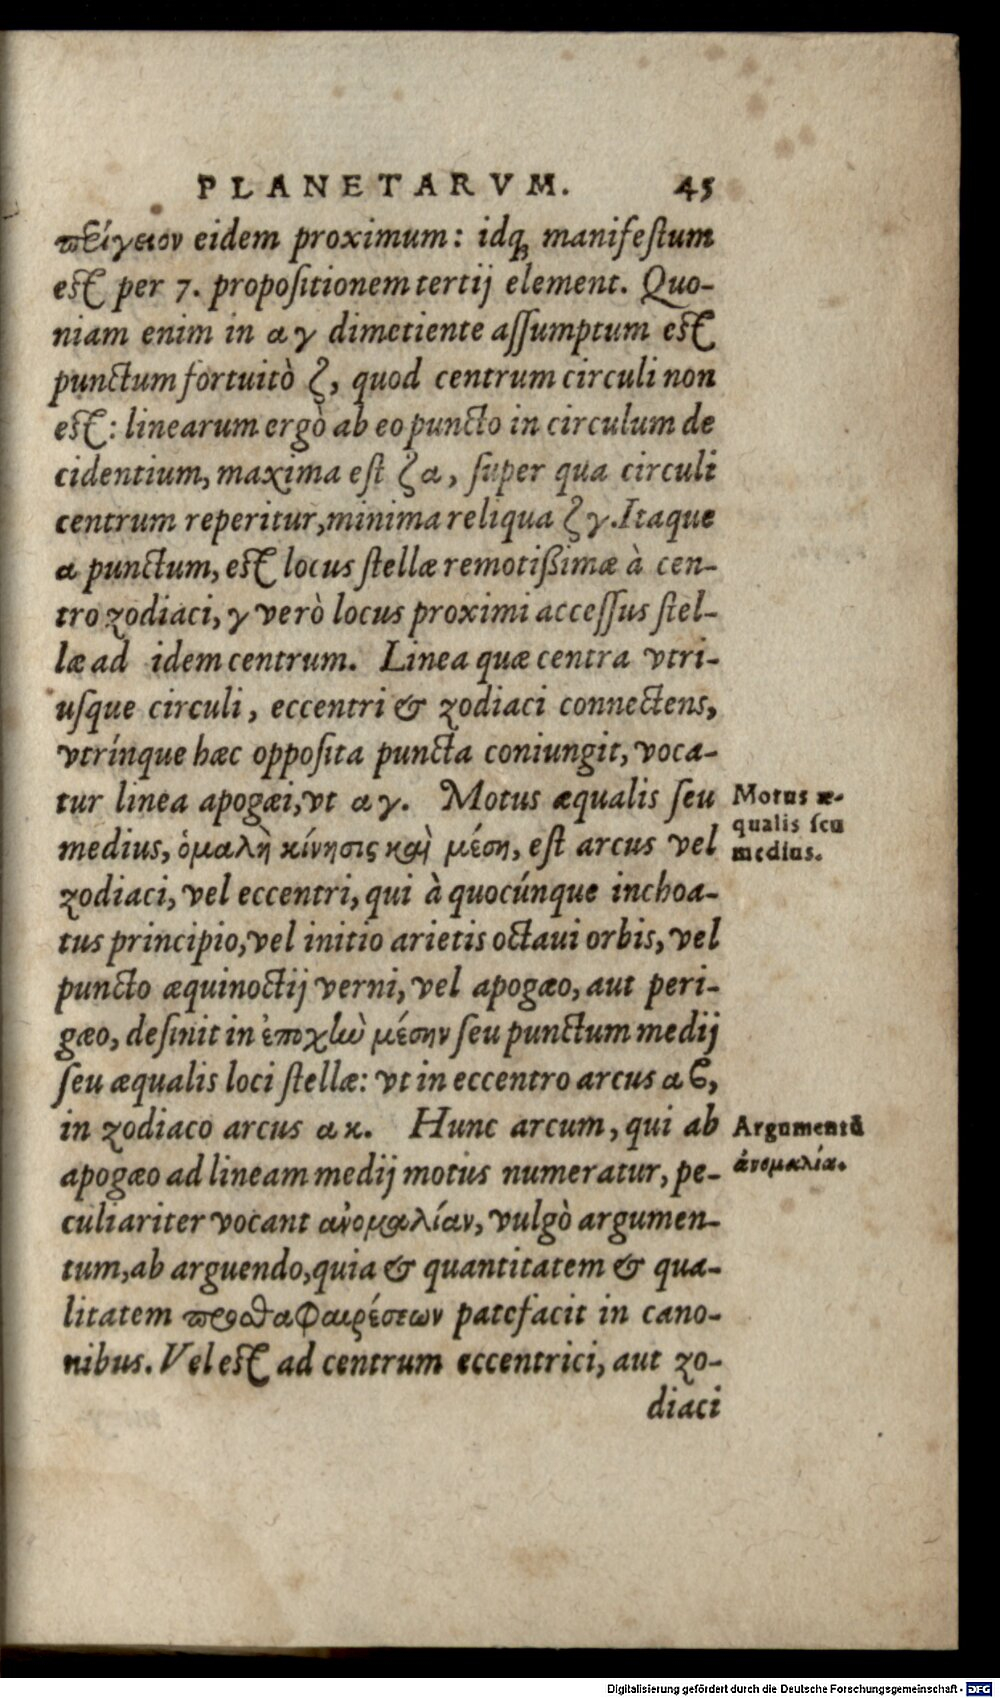 PLANETARVM. 45
πεείγειον eidem proximum: idq; manifeſtum
eſt per 7. propoſitionem tertij element. Quo-
niam enim in α γ dimetiente aſſumptum eſt
punctum fortuitò ζ, quod centrum circuli non
eſt: linearum ergò ab eo puncto in circulum de
cidentium, maxima eſt ζ α, ſuper qua circuli
centrum reperitur, minima reliqua ζ γ. Itaque
α punctum, eſt locus ſtellæ remotißimæ à cen-
tro zodiaci, γ verò locus proximi acceſſus ſtel-
læ ad idem centrum. Linea quæ centra vtri-
uſque circuli, eccentri & zodiaci connectens,
vtrínque hæc oppoſita puncta coniungit, voca-
tur linea apogæi, vt α γ. Motus æqualis ſeu
Motus æ-
qualis ſeu
medius.
medius, ὁμαλὴ κίνησις καὶ μέση, eſt arcus vel
zodiaci, vel eccentri, qui à quocúnque inchoa-
tus principio, vel initio arietis octaui orbis, vel
puncto æquinoctij verni, vel apogæo, aut peri-
gæo, deſinit in ἐποχὴν μέσην ſeu punctum medij
ſeu æqualis loci ſtellæ: vt in eccentro arcus α ϐ,
in zodiaco arcus α κ. Hunc arcum, qui ab
Argumentū
ἀνομαλία.
apogæo ad lineam medij motus numeratur, pe-
culiariter vocant ἀνομαλίαν, vulgò argumen-
tum, ab arguendo, quia & quantitatem & qua-
litatem προσθαφαιρέσεων patefacit in cano-
nibus. Vel eſt ad centrum eccentrici, aut zo-
diaci
Digitalisierung gefördert durch die Deutsche Forschungsgemeinschaft - DFG